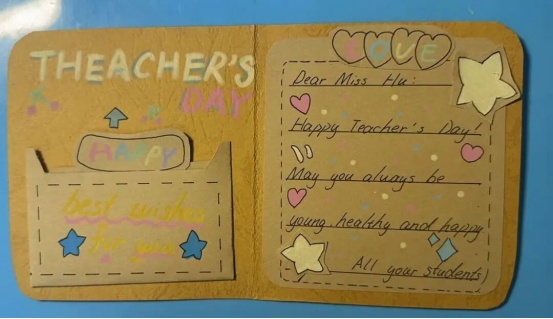 THEACHER'S
DAY
HAPPY
best wishes
for you
LOVE
Dear Miss Hu:
Happy Teacher's Day!
May you always be
young. healthy and happy
All your students